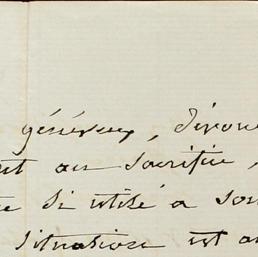 généreux, dévou
nt au sacrifice,
re si utile à son
situation est a